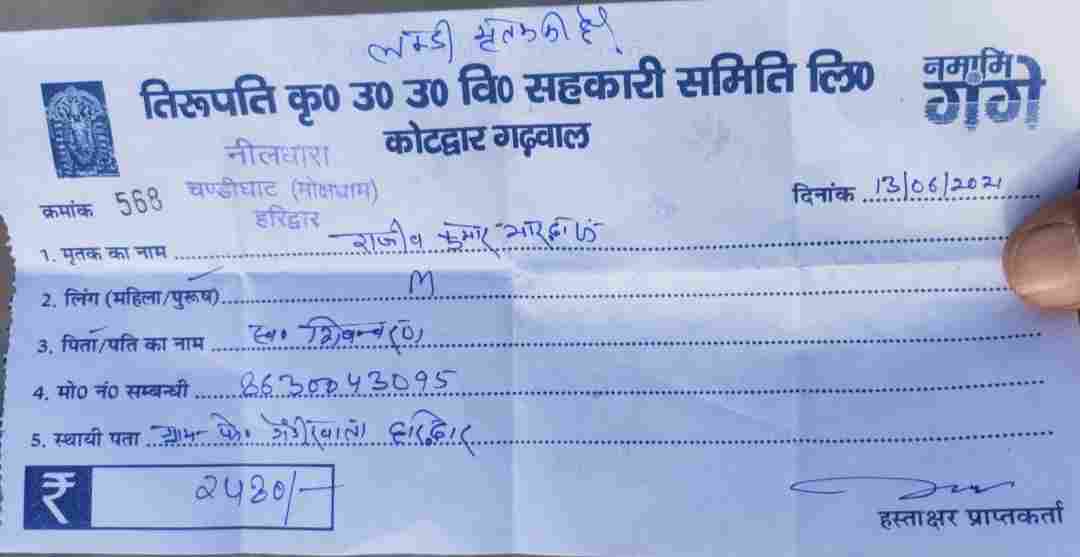 लकडी मृतक की है
तिरूपति कृ0 उ0 उ0 वि0 सहकारी समिति लि0
नमामि
गंगे
कोटद्वार गढ़वाल
नीलधारा
चण्डीघाट (मोक्षधाम)
हरिद्वार
क्रमांक 568
दिनांक 13/06/2021
1. मृतक का नाम राजीव कुमार भारद्वाज
2. लिंग (महिला/पुरूष) M
3. पिता/पति का नाम स्व०
4. मो0 नं0 सम्बन्धी 8630043095
5. स्थायी पता ग्राम पो० हरिद्वार
₹ 2430/-
हस्ताक्षर प्राप्तकर्ता